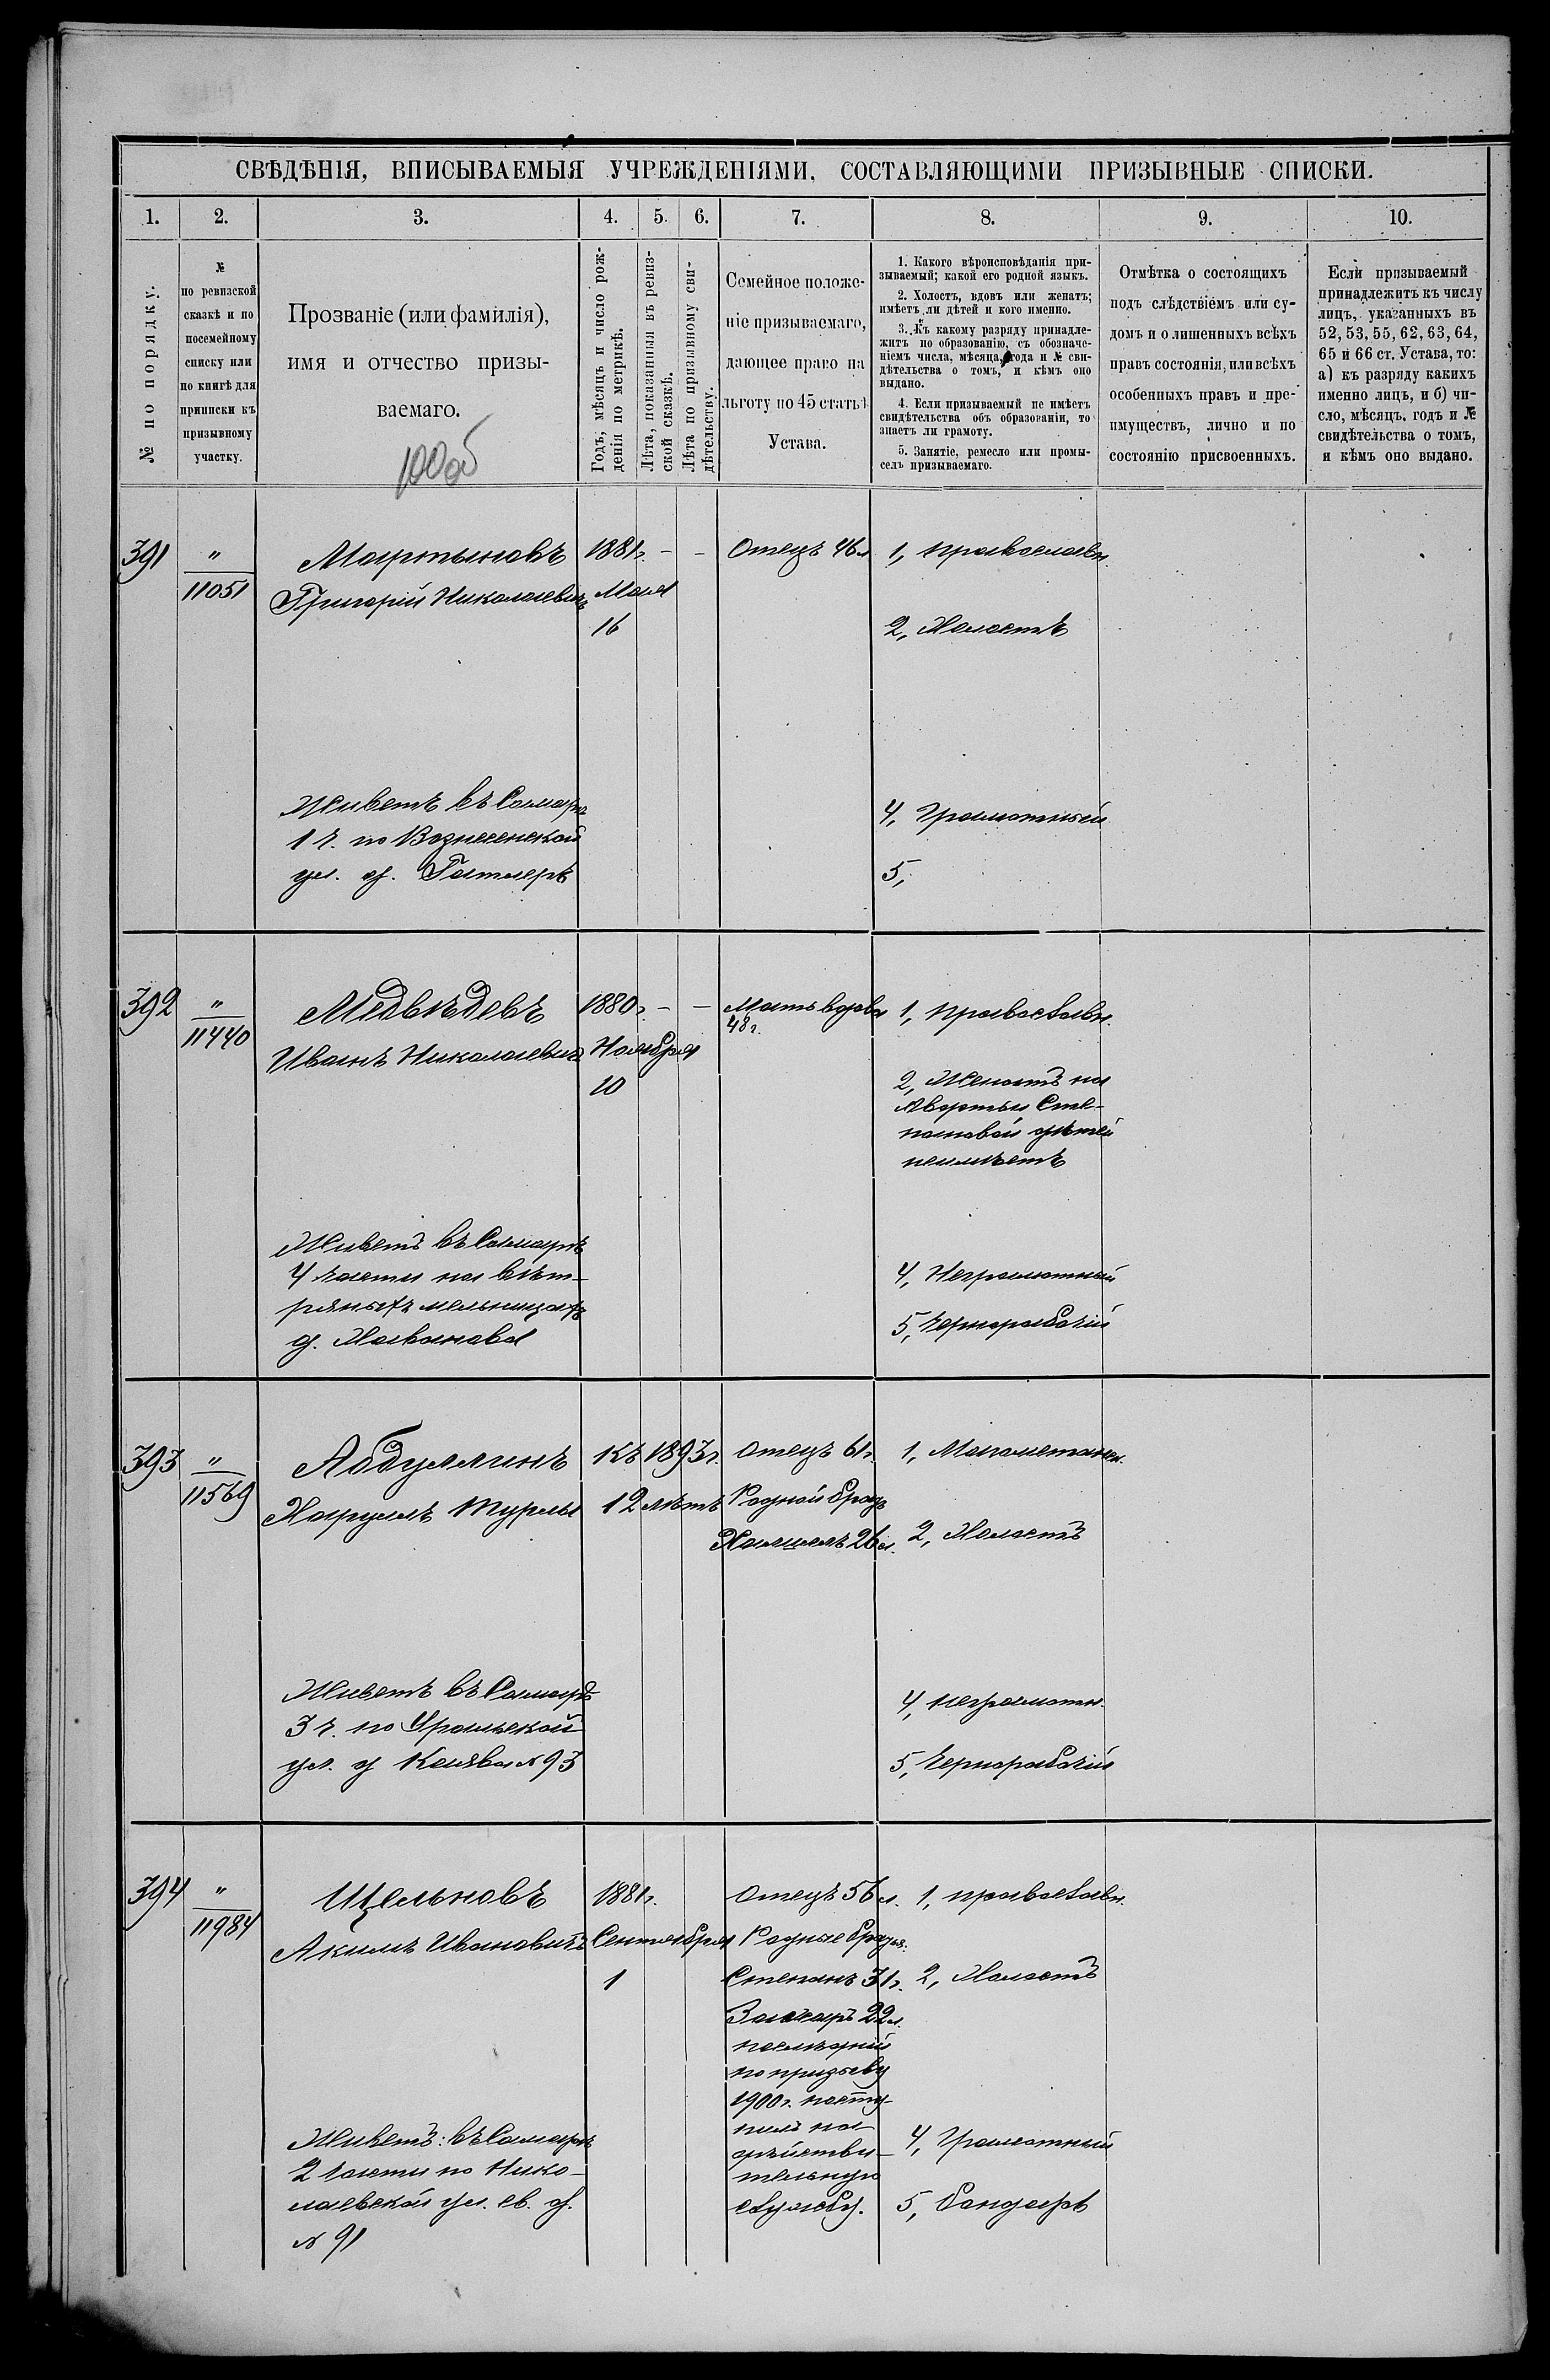 СВѢДѢНІЯ, ВПИСЫВАЕМЫЯ УЧРЕЖДЕНІЯМИ, СОСТАВЛЯЮЩИМИ ПРИЗЫВНЫЕ СПИСКИ.
1. 2. 3. 4. 5. 6. 7. 8. 9. 10.
№ по порядку.
№
по ревизской
сказкѣ и по
посемейному
списку или
по книгѣ для
приписки къ
призывному
участку.
Прозваніе (или фамилія),
имя и отчество призы-
ваемаго.
Годъ, мѣсяцъ и число рож-
денія по метрикѣ.
Лѣта, показанныя въ ревиз-
ской сказкѣ.
Лѣта по призывному сви-
дѣтельству.
Семейное положе-
ніе призываемаго,
дающее право на
льготу по 45 статьѣ
Устава.
1. Какого вѣроисповѣданія при-
зываемый; какой его родной языкъ.
2. Холостъ, вдовъ или женатъ;
имѣетъ ли дѣтей и кого именно.
3. Къ какому разряду принадле-
житъ по образованію, съ обозначе-
ніемъ числа, мѣсяца, года и № сви-
дѣтельства о томъ, и кѣмъ оно
выдано.
4. Если призываемый не имѣетъ
свидѣтельства объ образованіи, то
знаетъ ли грамоту.
5. Занятіе, ремесло или промы-
селъ призываемаго.
Отмѣтка о состоящихъ
подъ слѣдствіемъ или су-
домъ и о лишенныхъ всѣхъ
правъ состоянія, или всѣхъ
особенныхъ правъ и пре-
имуществъ, лично и по
состоянію присвоенныхъ.
Если призываемый
принадлежитъ къ числу
лицъ, указанныхъ въ
52, 53, 55, 62, 63, 64,
65 и 66 ст. Устава, то:
а) къ разряду какихъ
именно лицъ, и б) чи-
сло, мѣсяцъ, годъ и №
свидѣтельства о томъ,
и кѣмъ оно выдано.
391
"
11051
Мартыновъ
Григорій Николаевичъ
1881г. - -
Мая
16
Отецъ 46 л
1, православн.
2, Холостъ
Живетъ въ Самарѣ
1 ч. по Вознесенской
ул. д.
4, Грамотный
5,
392
"
11440
Медвѣдевъ
Иванъ Николаевичъ
1880г. - -
Ноября
10
Мать вдова
48г.
1, православн.
2, Женатъ на
Авдотьи Сте-
пановой дѣтей
неимѣетъ
Живетъ въ Самарѣ
4 части на вѣт-
ряныхъ мельницахъ
д.
4, Неграмотный
5, Чернорабочій
393
"
11569
Абдуллинъ
Хайруллъ
Къ 1893г.
12 лѣтъ
Отецъ 61г.
Родной братъ
26 л.
1, Магометанск.
2, Холостъ
Живетъ въ Самарѣ
3 ч. по Уральской
ул. д № 93
4, неграмотн.
5, Чернорабочій
394
"
11984
Щельновъ
Акимъ Ивановичъ
1881г.
Сентября
1
Отецъ 56 л.
Родные братья:
Степанъ 31г.
Захаръ 22 л.
послѣдній
по призыву
1900г. посту-
пилъ на
дѣйстви-
тельную
службу.
1, православн.
2, Холостъ
Живетъ: въ Самарѣ
2 части по Нико-
лаевской ул. св. д.
№ 91
4, Грамотный
5, Бондарь